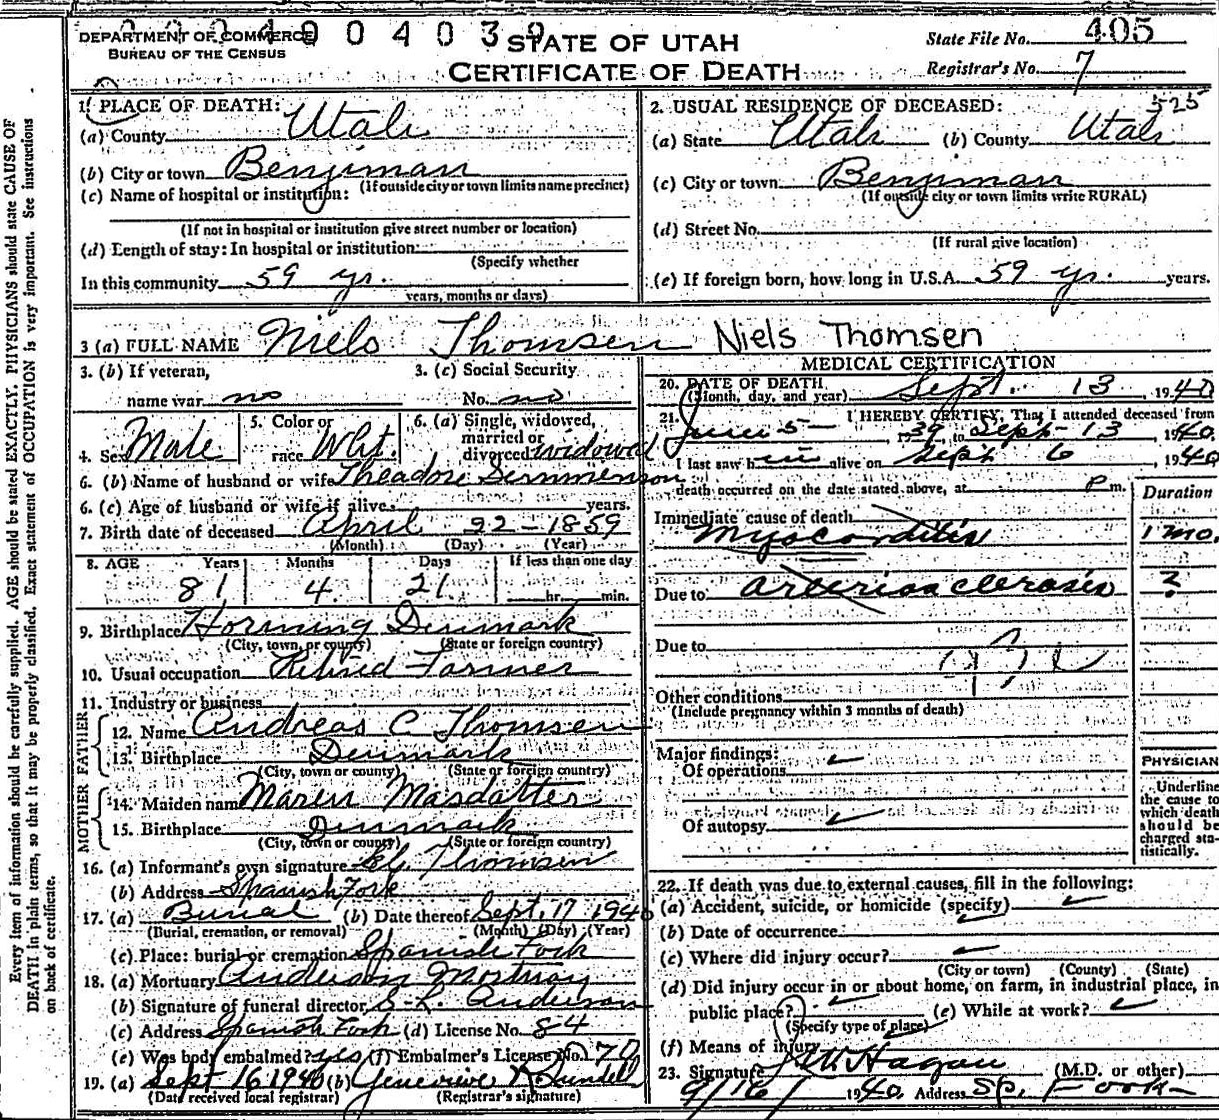 DEPARTMENT OF COMMERCE
BUREAU OF THE CENSUS
0 0 4 0 3 9
STATE OF UTAH
CERTIFICATE OF DEATH
State File No. 405
Registrar's No. 7
1. PLACE OF DEATH:
(a) County Utah
(b) City or town Benjiman
(If outside city or town limits name precinct)
(c) Name of hospital or institution:
(If not in hospital or institution give street number or location)
(d) Length of stay: In hospital or institution:
(Specify whether
In this community 59 yr.
years, months or days)
2. USUAL RESIDENCE OF DECEASED: 525
(a) State Utah (b) County Utah
(c) City or town Benjiman
(If outside city or town limits write RURAL)
(d) Street No.
(If rural give location)
(e) If foreign born, how long in U.S.A. 59 yr. years.
3 (a) FULL NAME Niels Thomsen Niels Thomsen
3. (b) If veteran,
name war no
3. (c) Social Security
No. no
4. Sex Male
5. Color or
race Wht.
6. (a) Single, widowed,
married or
divorced widowed
6. (b) Name of husband or wife Theadore
6. (c) Age of husband or wife if alive years.
7. Birth date of deceased April 22-1859
(Month) (Day) (Year)
8. AGE Years Months Days If less than one day
81 4 21 hr. min.
9. Birthplace Horning Denmark
(City, town, or county) (State or foreign country)
10. Usual occupation Retired Farmer
11. Industry or business
FATHER
12. Name Andreas C Thomsen
13. Birthplace Denmark
(City, town or county) (State or foreign country)
MOTHER
14. Maiden name Maren Masdatter
15. Birthplace Denmark
(City, town or county) (State or foreign country)
16. (a) Informant's own signature Thomsen
(b) Address Spanish Fork
17. (a) Burial (b) Date thereof Sept. 17 1940
(Burial, cremation, or removal) (Month) (Day) (Year)
(c) Place: burial or cremation Spanish Fork
18. (a) Mortuary Anderson Mortuary
(b) Signature of funeral director Anderson
(c) Address Spanish Fork (d) License No. 84
(e) Was body embalmed? yes (f) Embalmer's License No. 70
19. (a) Sept 16 1940 (b) Genevieve
(Date received local registrar) (Registrar's signature)
MEDICAL CERTIFICATION
20. DATE OF DEATH
(Month, day, and year) Sept. 13, 1940
21. I HEREBY CERTIFY, That I attended deceased from
June 5, 1939, to Sept 13, 1940.
I last saw him alive on Sept 6, 1940
death occurred on the date stated above, at P m.
Duration
Immediate cause of death
Myocarditis 1 mo.
Due to arteriosclerosis ?
Due to
Other conditions
(Include pregnancy within 3 months of death)
Major findings:
Of operations
Of autopsy
PHYSICIAN
Underline
the cause to
which death
should be
charged sta-
tistically.
22. If death was due to external causes, fill in the following:
(a) Accident, suicide, or homicide (specify)
(b) Date of occurrence
(c) Where did injury occur?
(City or town) (County) (State)
(d) Did injury occur in or about home, on farm, in industrial place, in
public place? (e) While at work?
(Specify type of place)
(f) Means of injury
23. Signature Hagan (M.D. or other)
9/16/1940 Address Sp. Fork
Every item of information should be carefully supplied. AGE should be stated EXACTLY. PHYSICIANS should state CAUSE OF
DEATH in plain terms, so that it may be properly classified. Exact statement of OCCUPATION is very important. See instructions
on back of certificate.